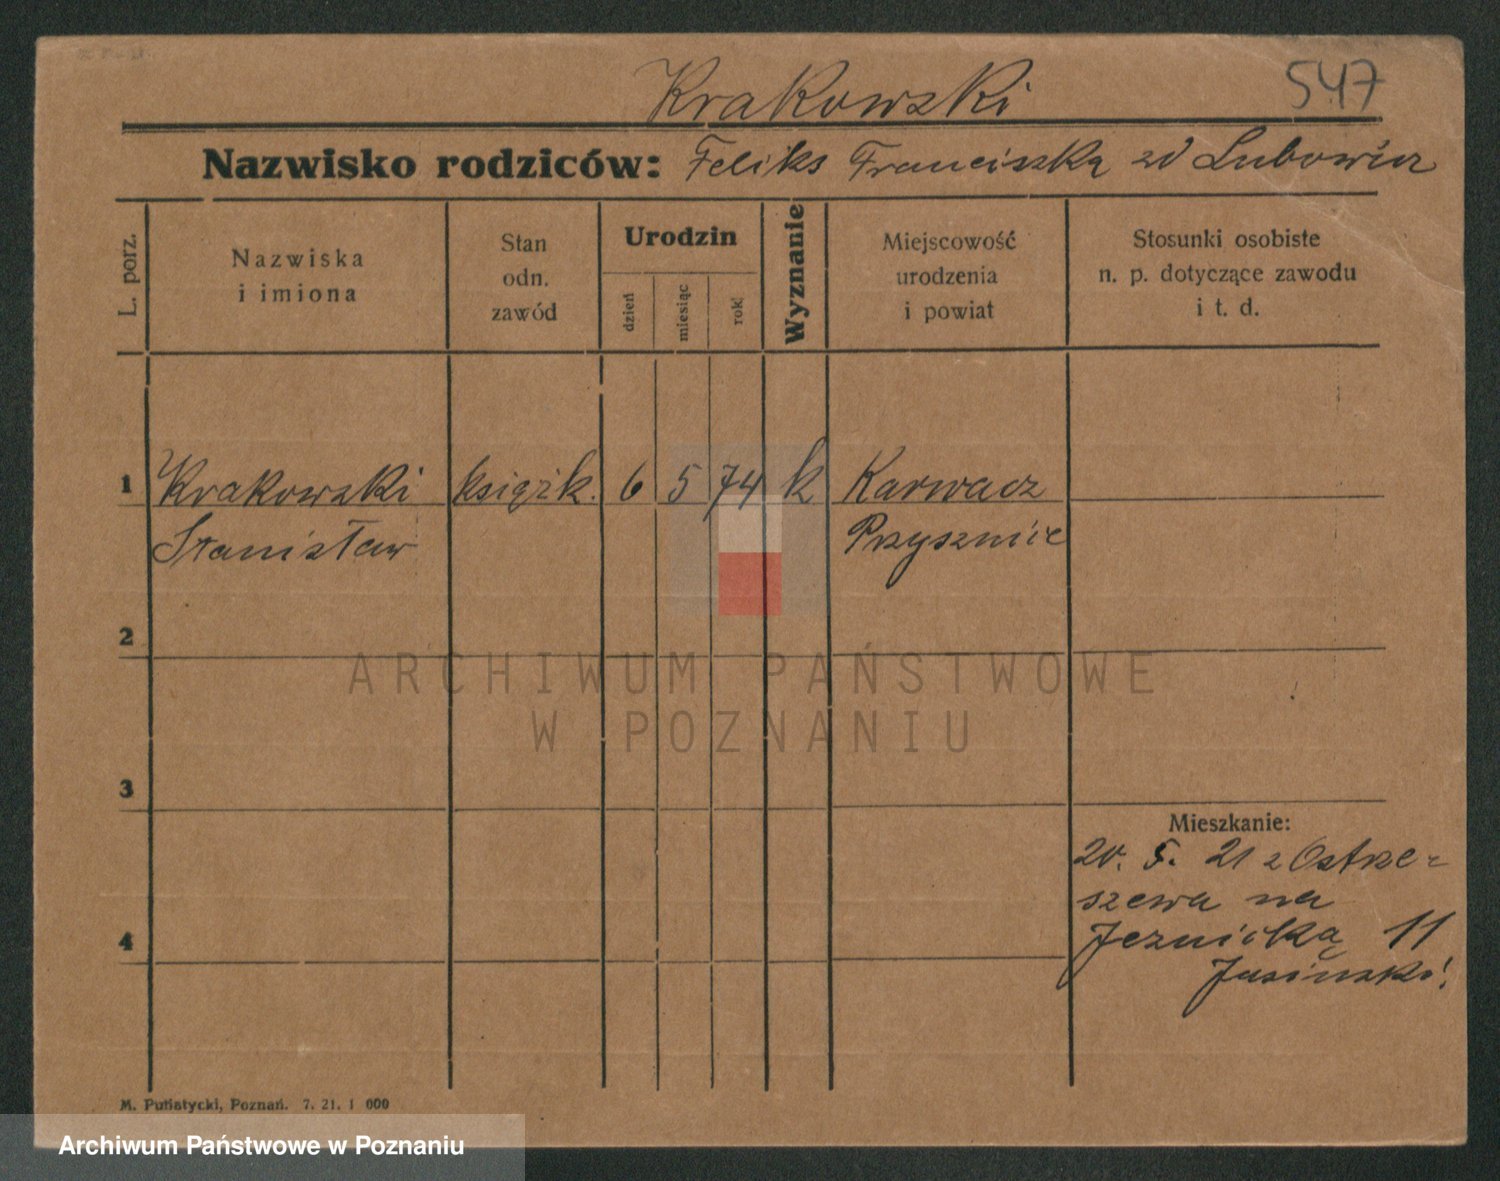 Krakowski 547
Nazwisko rodziców: Feliks Franciszka zd Lubowicz
L. porz.
Nazwiska
i imiona
Stan
odn.
zawód
Urodzin
dzień
miesiąc
rok
Wyznanie
Miejscowość
urodzenia
i powiat
Stosunki osobiste
n. p. dotyczące zawodu
i t. d.
1 Krakowski książk. 6 5 74 k Karwacz
Stanisław
2
3
4
Mieszkanie:
20. 5. 21 z Ostrze-
szewa na
11
M. Putiatycki, Poznań. 7. 21. 1 000
ARCHIWUM PAŃSTWOWE
W POZNANIU
Archiwum Państwowe w Poznaniu